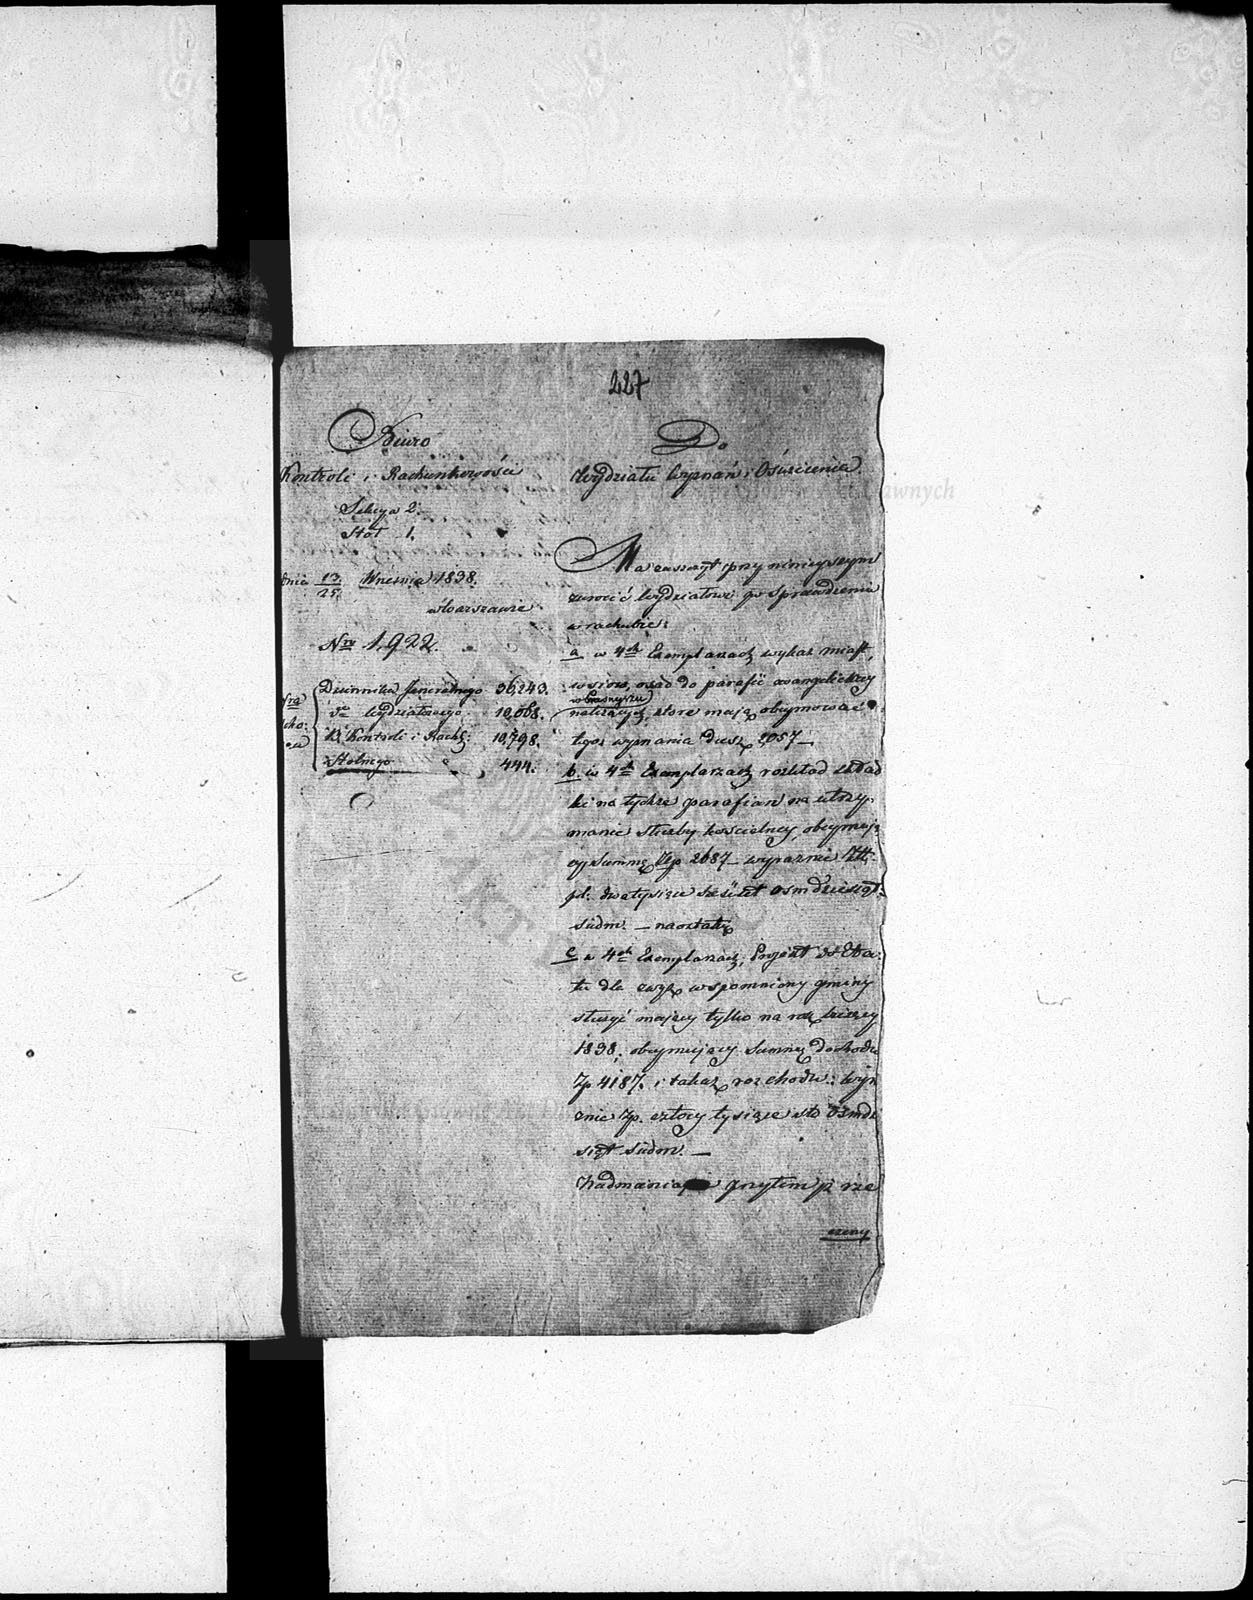 227
Biuro
Kontroli i Rachunkowości
Sekcya 2.
Stół 1.
dnia 13/25 Września 1838.
w Warszawie
Nro 1,922.
Dziennika Jeneralnego 36,243.
do Wydziałowego 10,068.
Kontroli i Rach: 10,798.
Stolnego 444.
Do
Wydziału Wyznań i Oświecenia.
Ma zaszczyt przy ninieyszym
zwrócić Wydziałowi po sprawdzeniu
w rachubie:
a w 4ch Exemplarzach wykaz miast,
wsiów, osad do parafii ewangelickiey
w Prasnyszu
należących, które mają obeymować
tegoż wyznania dusz 2,057 —
b. w 4ch Exemplarzach rozkład skład
ki na tychże parafian na utrzy-
manie służby kościelney, obeymują
cy Summę Złp 2687 — wyraźnie Złt:
pl. dwa tysiące sześćset ośmdziesiąt
siedm. — na ostatek
c w 4ch Exemplarzach, Projekt do Eta-
tu dla wspomnioney gminy
służyć maiący tylko na rok bieżący
1838. obeymujący Summę dochodu
Zp 4187. i takąż rozchodu: wyra
źnie Zp. cztery tysiące sto ośmdzie
siąt siedm. —
Nadmienia przytem iż rze
czony